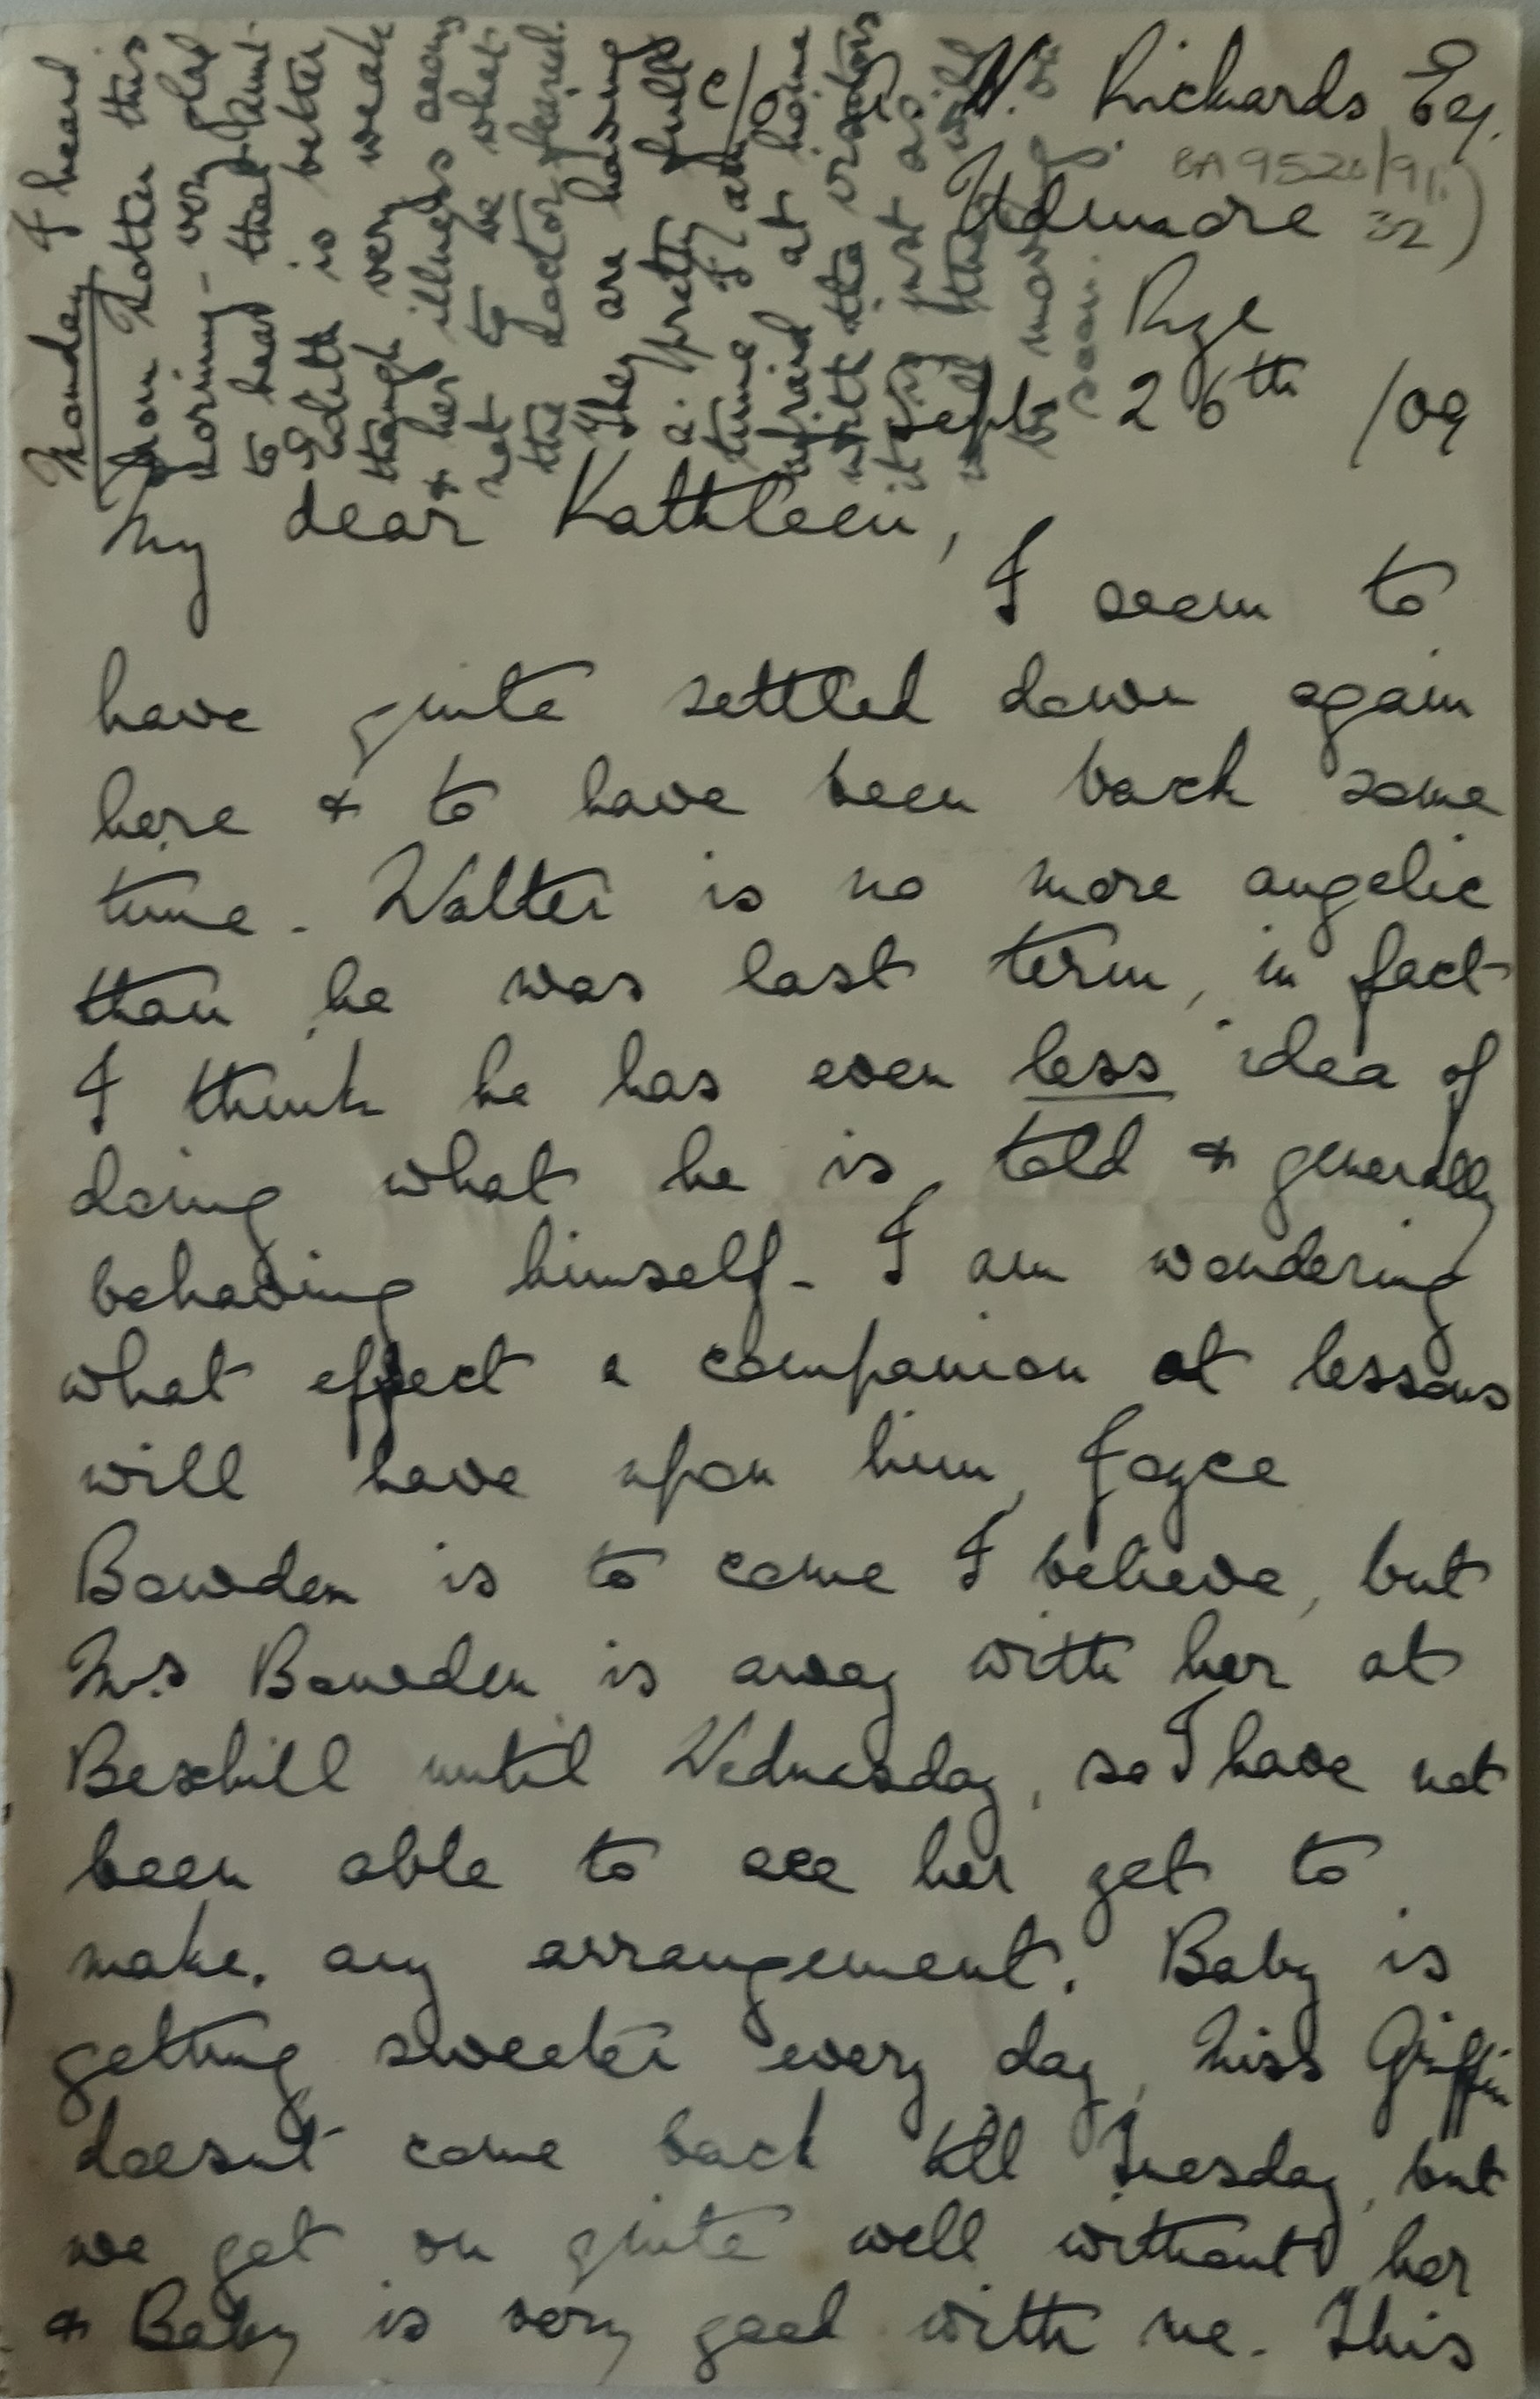 c/o R W. Rickards Esq.
BA 9520/91.
Udimore 32)
Rye
Sept 26th /09
My dear Kathleen,
I seem to
have quite settled down again
here & to have been back some
time. Walter is no more angelic
than he was last term, in fact
I think he has even less idea of
doing what he is told & generally
behaving himself. I am wondering
what effect a companion at lessons
will have upon him, Joyce
Bowden is to come I believe, but
Mrs Bowden is away with her at
Bexhill until Wednesday, so I have not
been able to see her yet to
make any arrangement. Baby is
getting sweeter every day, Miss Griffin
doesn't come back till Tuesday, but
we get on quite well without her
& Baby is very good with me. This
Monday I heard
from Mother this
morning - very glad
to hear that Aunt
Edith is better
though very weak
& her illness seems
not to be what
the doctor feared.
They are having
a pretty full
time I am
afraid at home
with the visitors
it is just as
well they will
be moving on
soon.